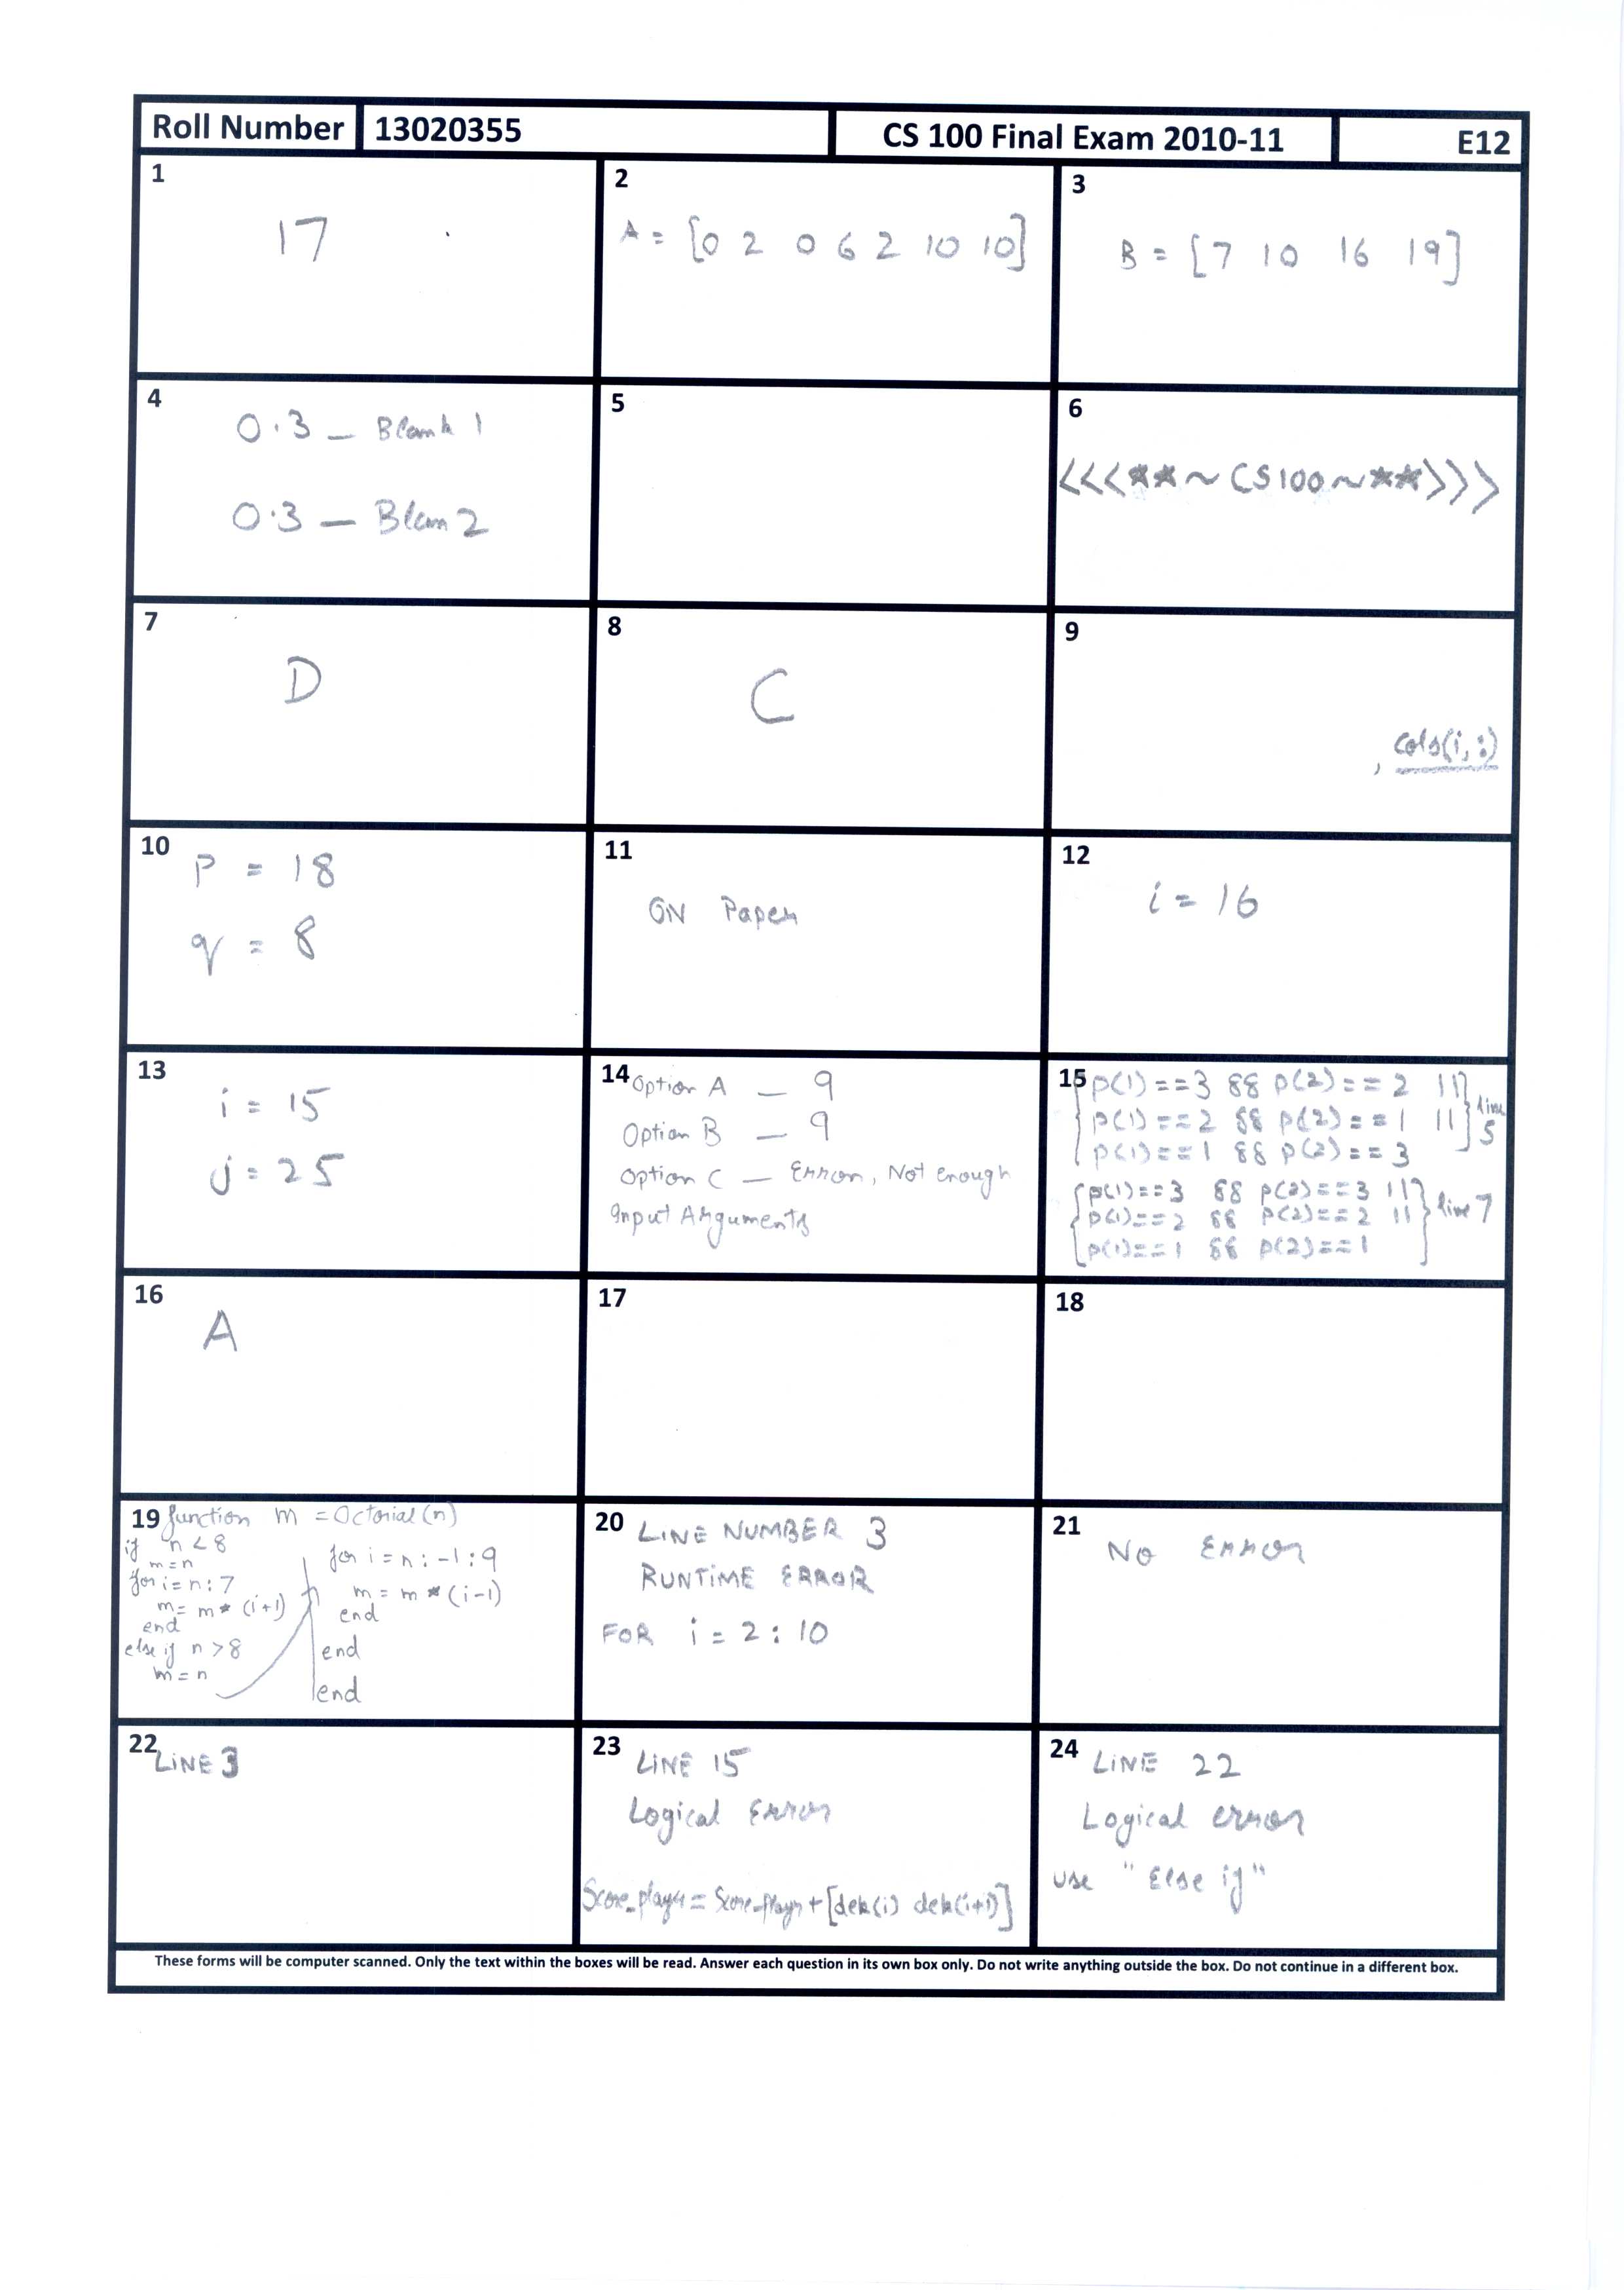 Roll Number 13020355 CS 100 Final Exam 2010-11 E12
1
17
2
A = [0 2 0 6 2 10 10]
3
B = [7 10 16 19]
4
0.3 — Blank 1
0.3 — Blan 2
5
6
<<<**~CS100~**>>>
7
D
8
C
9
, cols(i,:)
10
P = 18
q = 8
11
ON Paper
12
i = 16
13
i = 15
j = 25
14
Option A — 9
Option B — 9
Option C — Error, Not enough
Input Arguments
15
p(1)==3 && p(2)==2 ||
p(1)==2 && p(2)==1 || line
p(1)==1 && p(2)==3 5
p(1)==3 && p(2)==3 || line 7
p(1)==2 && p(2)==2 ||
p(1)==1 && p(2)==1
16
A
17
18
19
function m = Octorial(n)
if n < 8
m=n
for i=n:7
m= m* (i+1)
end
else if n >8
m=n
for i=n:-1:9
m=m*(i-1)
end
end
end
20
LINE NUMBER 3
RUNTIME ERROR
FOR i = 2:10
21
NO Error
22
LINE 3
23
LINE 15
Logical Error
Score_player = Score_playr + [dek(i) dek(i+1)]
24
LINE 22
Logical error
use "Else if"
These forms will be computer scanned. Only the text within the boxes will be read. Answer each question in its own box only. Do not write anything outside the box. Do not continue in a different box.